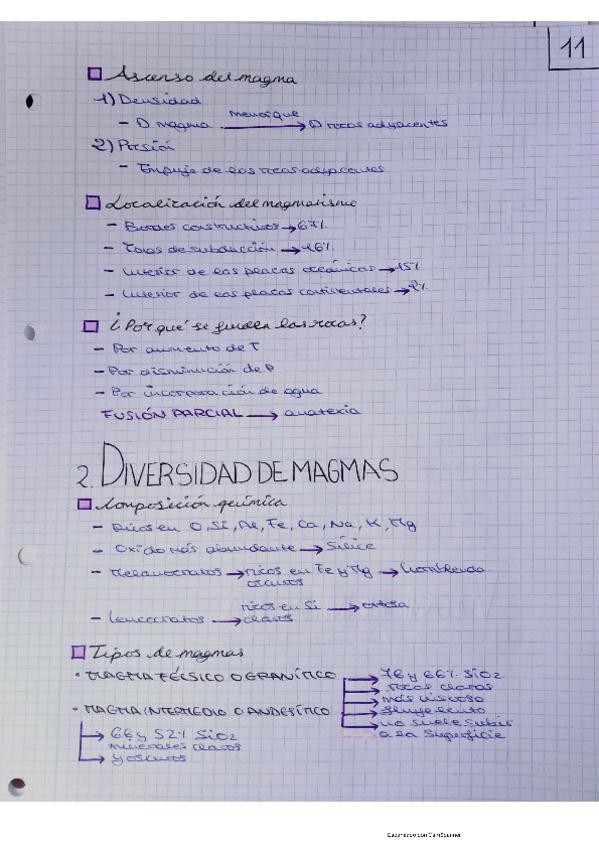 11
Ascenso del magma
1) Densidad
- D magma menor que → D rocas adyacentes
2) Presión
- Empuje de las rocas adyacentes
Localización del magmatismo
- Bordes constructivos → 67%
- Zonas de subducción → 16%
- Interior de las placas oceánicas → 15%
- Interior de las placas continentales → 2%
¿Por qué se funden las rocas?
- Por aumento de T
- Por disminución de P
- Por incorporación de agua
FUSIÓN PARCIAL → anatexia
2. DIVERSIDAD DE MAGMAS
Composición química
- Ricos en O, Si, Al, Fe, Ca, Na, K, Mg
- Oxido más abundante → Sílice
- Melanocratos → ricos en Fe y Mg → hornblenda
oscuros
ricos en Si → ortosa
- Leucocratos → claros
Tipos de magmas
• MAGMA FÉLSICO O GRANÍTICO → 76 y 66% SiO2
→ rocas claras
→ más viscoso
• MAGMA INTERMEDIO O ANDESÍTICO → fluye lento
→ no suele subir
→ 66 y 52% SiO2 a la superficie
minerales claros
→ y oscuros
Escaneado con CamScanner